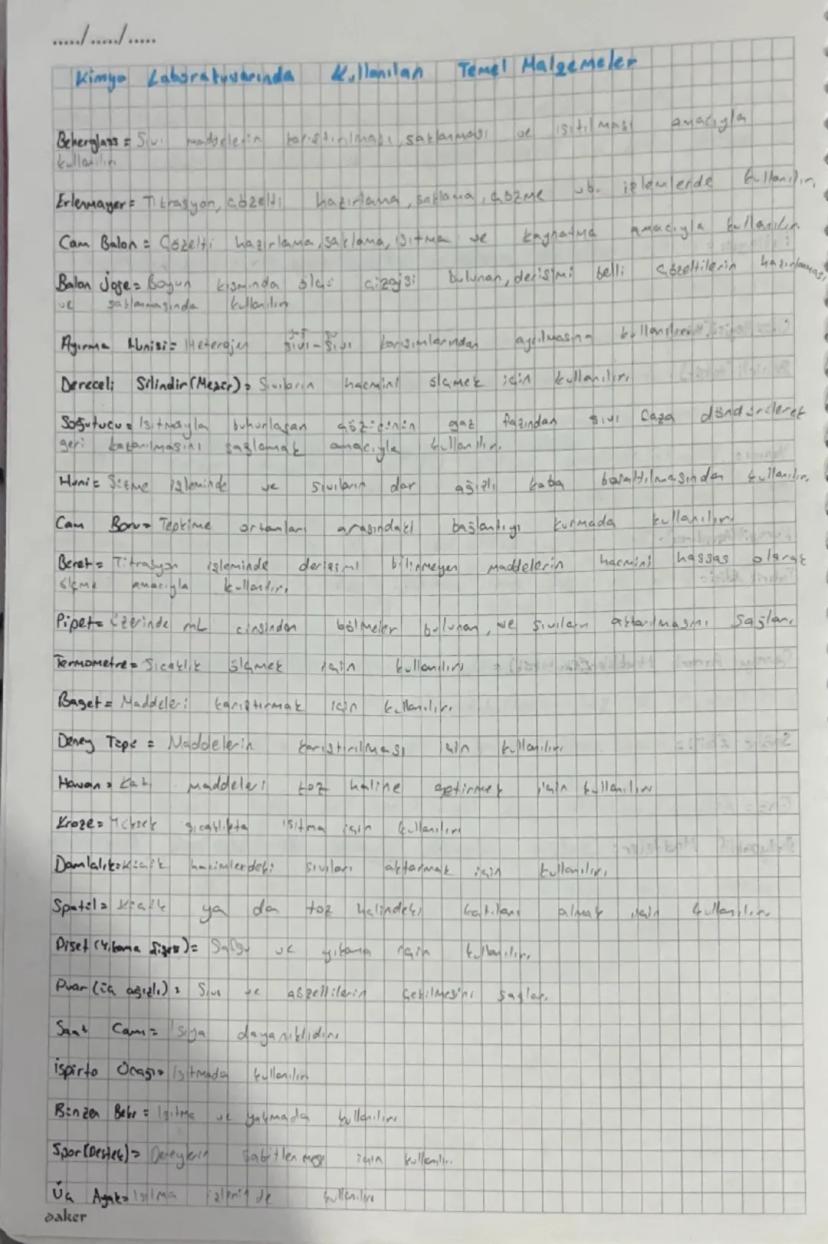 ...../...../.....
Kimya Laboratuvarında Kullanılan Temel Malzemeler
Beherglass = Sıvı maddelerin karıştırılması, saklanması ve ısıtılması amacıyla
kullanılır.
Erlenmayer = Titrasyon, çözelti hazırlama, saklama, çözme vb. işlemlerde kullanılır.
Cam Balon = Çözelti hazırlama, saklama, ısıtma ve kaynatma amacıyla kullanılır.
Balon joje = Boyun kısmında ölçü çizgisi bulunan, derişimi belli çözeltilerin hazırlanması
ve saklanmasında kullanılır.
Ayırma Hunisi = Heterojen sıvı-sıvı karışımlarından ayrılmasına kullanılır.
Dereceli Silindir (Mezer) = Sıvıların hacmini ölçmek için kullanılır.
Soğutucu = Isıtmayla buharlaşan çözücünün gaz fazından sıvı faza döndürülerek
geri kazanılmasını sağlamak amacıyla kullanılır.
Huni = Süzme işleminde ve sıvıların dar ağızlı kaba boşaltılmasından kullanılır.
Cam Boru = Tepkime ortamları arasındaki bağlantıyı kurmada kullanılır.
Beret = Titrasyon işleminde derişimi bilinmeyen maddelerin hacmini hassas olarak
ölçme amacıyla kullanılır.
Pipet = Üzerinde mL cinsinden bölmeler bulunan, ve sıvıların aktarılmasını sağlar.
Termometre = Sıcaklık ölçmek için kullanılır.
Baget = Maddeleri karıştırmak için kullanılır.
Deney Tüpü = Maddelerin karıştırılması için kullanılır.
Havan = Katı maddeleri toz haline getirmek için kullanılır.
Kroze = Yüksek sıcaklıkta ısıtma için kullanılır.
Damlalık = Küçük hacimlerdeki sıvıları aktarmak için kullanılır.
Spatül = Küçük ya da toz halindeki katıları almak için kullanılır.
Piset (Yıkama Şişesi) = ve yıkama için kullanılır.
Puar (üç ağızlı) = Sıvı ve çözeltilerin çekilmesini sağlar.
Saat Camı = Isıya dayanıklıdır.
İspirto Ocağı = Isıtmada kullanılır.
Binzen Beki = Isıtma ve yakmada kullanılır.
Spor (Destek) = Deneylerin sabitlenmesi için kullanılır.
Üç Ayak = Isıtma işleminde kullanılır.
saker